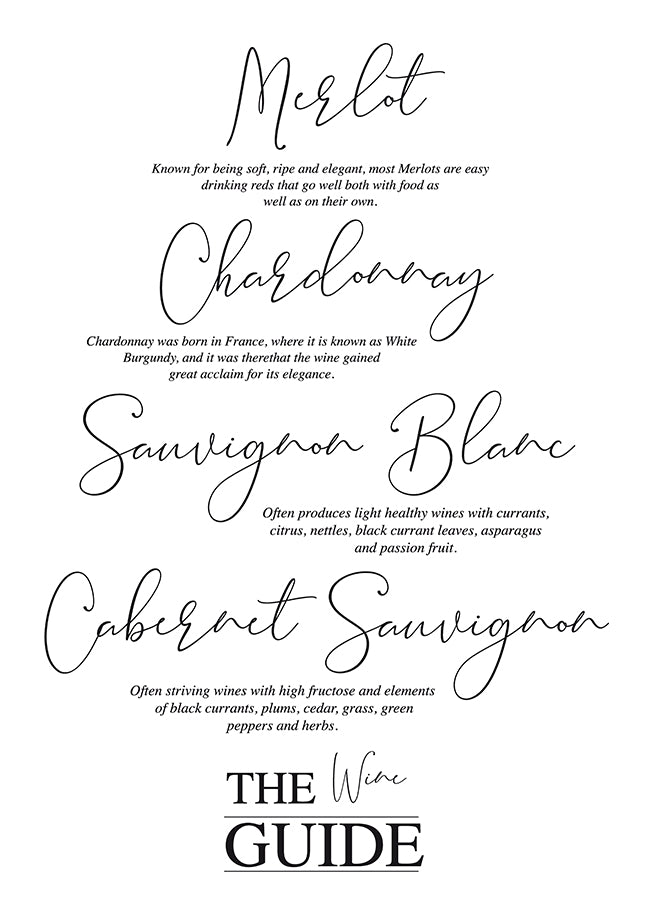 Merlot
Known for being soft, ripe and elegant, most Merlots are easy
drinking reds that go well both with food as
well as on their own.
Chardonnay
Chardonnay was born in France, where it is known as White
Burgundy, and it was therethat the wine gained
great acclaim for its elegance.
Sauvignon Blanc
Often produces light healthy wines with currants,
citrus, nettles, black currant leaves, asparagus
and passion fruit.
Cabernet Sauvignon
Often striving wines with high fructose and elements
of black currants, plums, cedar, grass, green
peppers and herbs.
THE Wine
GUIDE